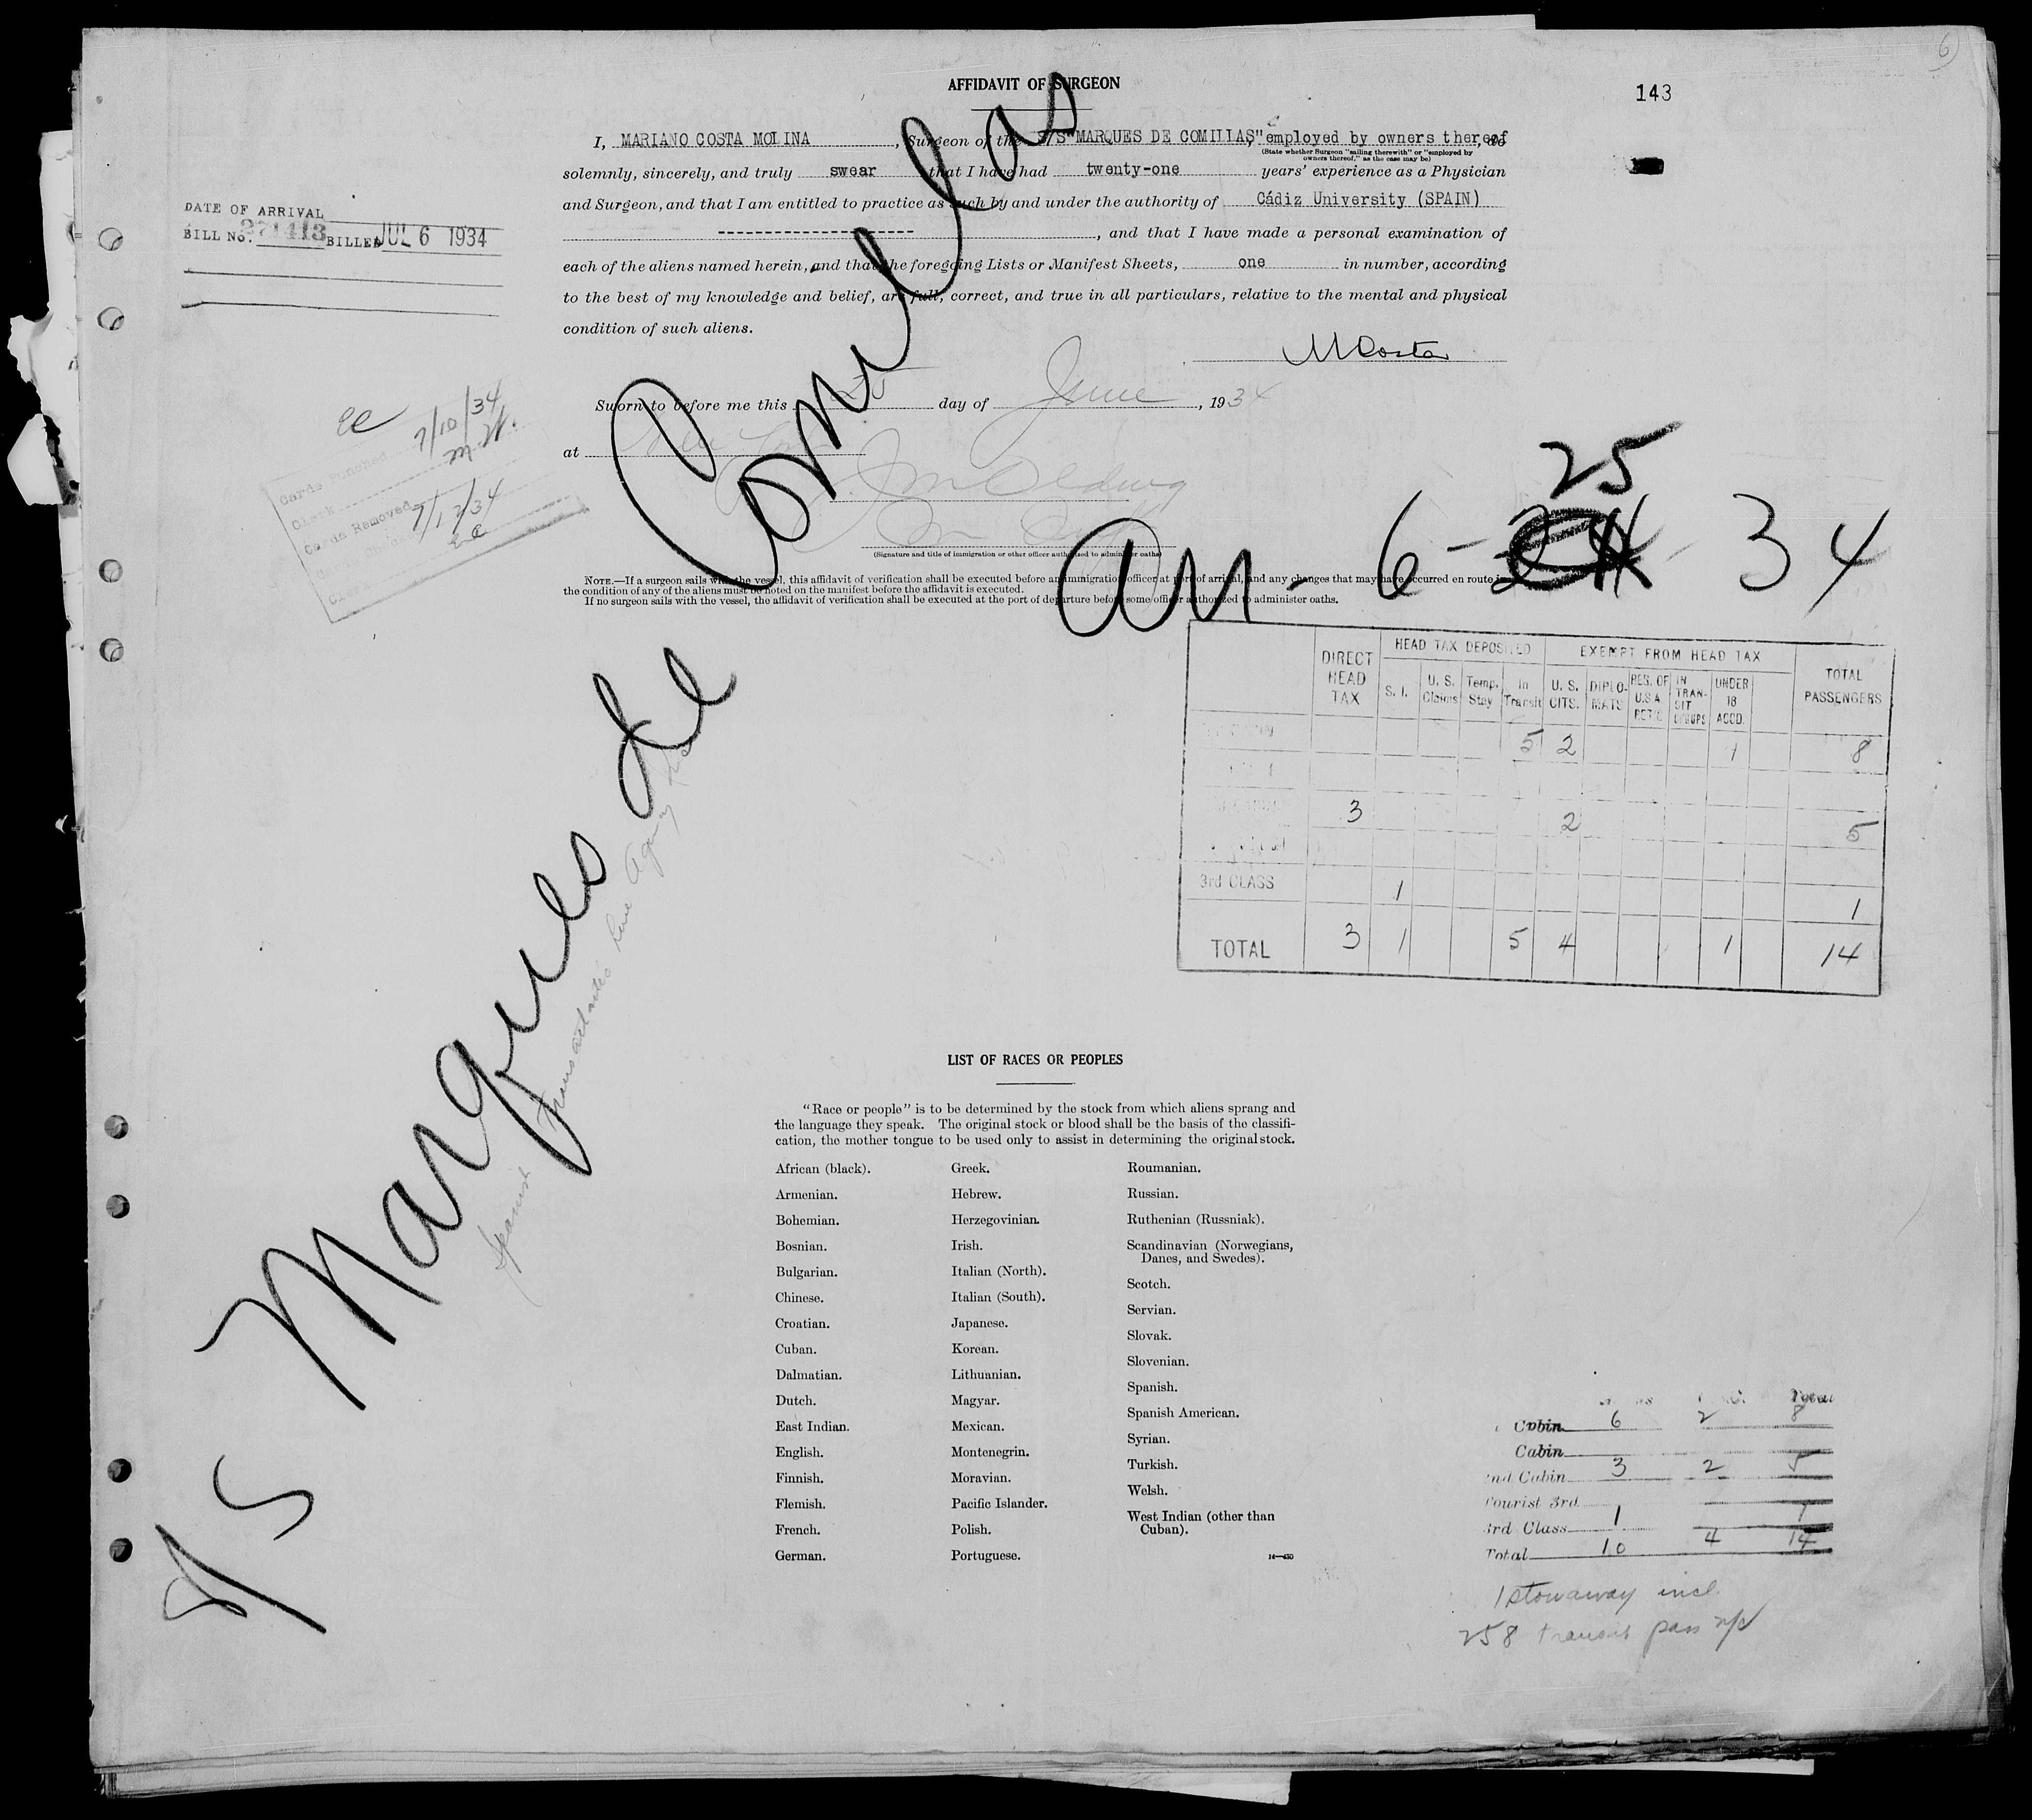 6
AFFIDAVIT OF SURGEON
143
I, MARIANO COSTA MOLINA, Surgeon of the S/S "MARQUES DE COMILLAS" employed by owners thereof, do
(State whether Surgeon "sailing therewith" or "employed by
owners thereof," as the case may be)
solemnly, sincerely, and truly swear that I have had twenty-one years' experience as a Physician
and Surgeon, and that I am entitled to practice as such by and under the authority of Cádiz University (SPAIN)
--------------------, and that I have made a personal examination of
each of the aliens named herein, and that the foregoing Lists or Manifest Sheets, one in number, according
to the best of my knowledge and belief, are full, correct, and true in all particulars, relative to the mental and physical
condition of such aliens.
MCosta
Sworn to before me this 25 day of June, 1934
at New York
(Signature and title of immigration or other officer authorized to administer oaths)
NOTE.—If a surgeon sails with the vessel, this affidavit of verification shall be executed before an immigration officer at port of arrival, and any changes that may have occurred en route in
the condition of any of the aliens must be noted on the manifest before the affidavit is executed.
If no surgeon sails with the vessel, the affidavit of verification shall be executed at the port of departure before some officer authorized to administer oaths.
DATE OF ARRIVAL
BILL No. 271413 BILLED JUL 6 1934
ee
Cards Punched 7/10/34
Clerk M.W.
Cards Removed 7/12/34
ee
S/S Marques de Comillas
Spanish Transatlantic Line Agency
Arr - 6 - 25 - 34
DIRECT HEAD TAX
HEAD TAX DEPOSITED
EXEMPT FROM HEAD TAX
TOTAL PASSENGERS
S. I. U. S. Claims Temp. Stay In Transit U. S. CITS. DIPLO-MATS RES. OF U.S.A. RET'G IN TRAN-SIT GROUPS UNDER 16 ACCD.
5 2 1 8
3 2 5
3rd CLASS 1 1
TOTAL 3 1 5 4 1 14
LIST OF RACES OR PEOPLES
"Race or people" is to be determined by the stock from which aliens sprang and
the language they speak. The original stock or blood shall be the basis of the classifi-
cation, the mother tongue to be used only to assist in determining the original stock.
African (black).
Armenian.
Bohemian.
Bosnian.
Bulgarian.
Chinese.
Croatian.
Cuban.
Dalmatian.
Dutch.
East Indian.
English.
Finnish.
Flemish.
French.
German.
Greek.
Hebrew.
Herzegovinian.
Irish.
Italian (North).
Italian (South).
Japanese.
Korean.
Lithuanian.
Magyar.
Mexican.
Montenegrin.
Moravian.
Pacific Islander.
Polish.
Portuguese.
Roumanian.
Russian.
Ruthenian (Russniak).
Scandinavian (Norwegians,
Danes, and Swedes).
Scotch.
Servian.
Slovak.
Slovenian.
Spanish.
Spanish American.
Syrian.
Turkish.
Welsh.
West Indian (other than
Cuban).
Total
Cabin 6 2 8
Cabin
2nd Cabin 3 2 5
Tourist 3rd
3rd Class 1 1
Total 10 4 14
1 stowaway incl.
258 transit pass